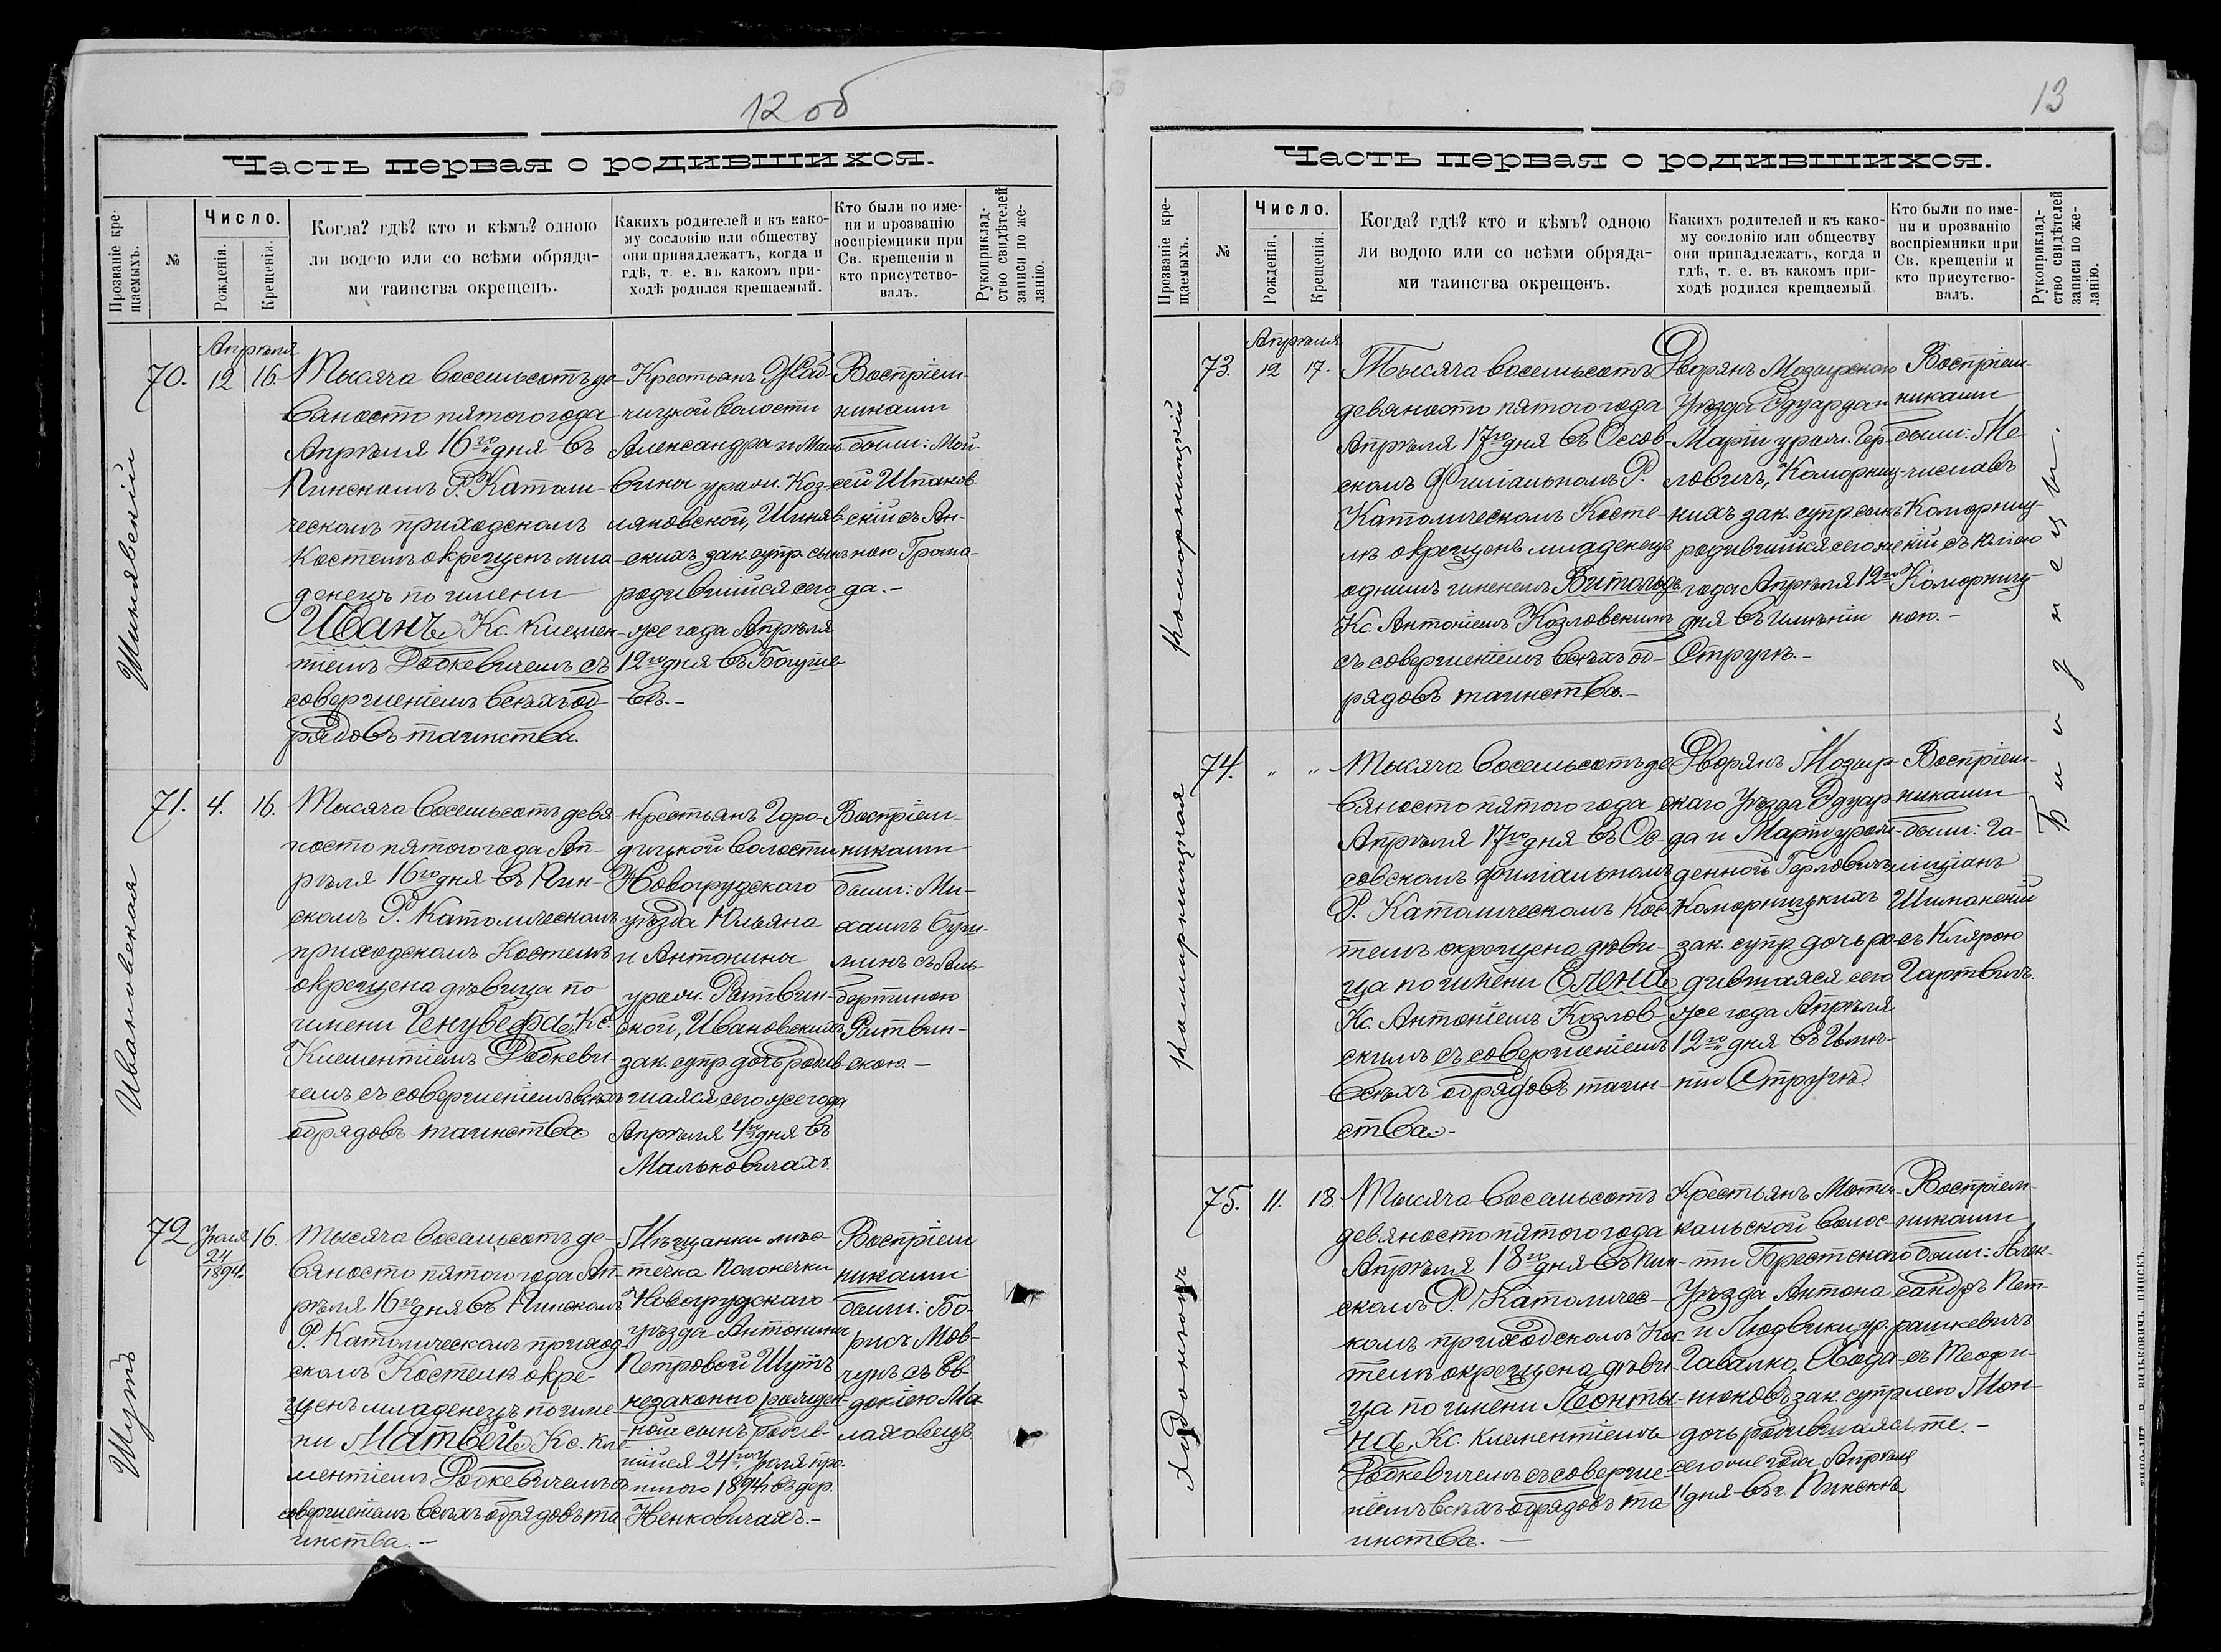 12 об
Часть первая о родившихся.
Прозваніе кре-
щаемыхъ.
№
Число.
Рожденія.
Крещенія.
Когда? гдѣ? кто и кѣмъ? одною
ли водою или со всѣми обряда-
ми таинства окрещенъ.
Какихъ родителей и къ како-
му сословію или обществу
они принадлежатъ, когда и
гдѣ, т. е. въ какомъ при-
ходѣ родился крещаемый.
Кто были по име-
ни и прозванію
воспріемники при
Св. крещеніи и
кто присутство-
валъ.
Рукоприклад-
ство свидѣтелей
записи по же-
ланію.
Шинявскій
70.
Апрѣля
12
16.
Тысяча восемьсотъ де-
вяносто пятого года
Апрѣля 16го дня въ
Пинскомъ Р. Католи-
ческомъ приходскомъ
Костелѣ окрещенъ мла-
денецъ по имени
Иванъ, Кс. Климен-
тіемъ Родкевичемъ съ
совершеніемъ всѣхъ об-
рядовъ таинства.
Крестьянъ Жаб-
чицкой волости
Александра и Маль-
вины урожд. Коз-
ляковской, Шиняв-
скихъ зак. супр. сынъ
родившійся сего
же года Апрѣля
12го дня въ Богуше-
вѣ.-
Воспріем-
никами
были: Мои-
сей Шпаков-
скій съ Ан-
ною Грома-
да.-
Ивановская
71.
4.
16.
Тысяча восемьсотъ девя-
носто пятого года Ап-
рѣля 16го дня въ Пин-
скомъ Р. Католическомъ
приходскомъ Костелѣ
окрещена дѣвица по
имени Генувефа, Кс.
Климентіемъ Родкеви-
чемъ съ совершеніемъ всѣхъ
обрядовъ таинства
Крестьянъ Горо-
дицкой волости
Новогрудскаго
уѣзда Юльяна
и Антонины
урожд. Ратвин-
ской, Ивановскихъ
зак. супр. дочь родив-
шаяся сего же года
Апрѣля 4го дня въ
Мальковичахъ.
Воспріем-
никами
были: Ми-
хаилъ Буги-
минъ съ Аль-
бертиною
Ратвин-
скою.-
Шутъ
72
Іюля
24
1894.
16.
Тысяча восемьсотъ де-
вяносто пятого года Ап-
рѣля 16го дня въ Пинскомъ
Р. Католическомъ приход-
скомъ Костелѣ окре-
щенъ младенецъ по име-
ни Матвей, Кс. Кле-
ментіемъ Родкевичемъ съ
совершеніемъ всѣхъ обрядовъ та-
инства.-
Мѣщанки мѣс-
течка Полонечки
Новогрудскаго
уѣзда Антонины
Петровой Шутъ
незаконно рожден-
ной сынъ родив-
шійся 24го Іюля про-
шлого 1894 г. въ дер.
Женковичахъ.-
Воспріем-
никами
были: Бо-
рисъ Мов-
чунъ съ Ев-
докіею Ма-
лаховецъ.
13
Часть первая о родившихся.
Прозваніе кре-
щаемыхъ.
№
Число.
Рожденія.
Крещенія.
Когда? гдѣ? кто и кѣмъ? одною
ли водою или со всѣми обряда-
ми таинства окрещенъ.
Какихъ родителей и къ како-
му сословію или обществу
они принадлежатъ, когда и
гдѣ, т. е. въ какомъ при-
ходѣ родился крещаемый
Кто были по име-
ни и прозванію
воспріемники при
Св. крещеніи и
кто присутство-
валъ.
Рукоприклад-
ство свидѣтелей
записи по же-
ланію.
Коморницкій
73.
Апрѣля
12
17.
Тысяча восемьсотъ
девяносто пятого года
Апрѣля 17го дня въ Оссов-
скомъ Филіальномъ Р.
Католическомъ Косте-
лѣ окрещенъ младенецъ
однимъ именемъ Витольдъ
Кс. Антоніемъ Козловскимъ
съ совершеніемъ всѣхъ об-
рядовъ таинства.-
Дворянъ Мозырскаго
Уѣзда Эдуарда и
Маріи урож. Гер-
ловичъ, Коморниц-
кихъ зак. супр. сынъ
родившійся сего же
года Апрѣля 12го
дня въ имѣніи
Стругѣ.-
Воспріем-
никами
были: Ме-
числавъ
Коморниц-
кій съ Юліею
Коморниц-
кою.-
Близнецы.
Коморницкая
74.
"
"
Тысяча восемьсотъ де-
вяносто пятого года
Апрѣля 17го дня въ Ос-
совскомъ филіальномъ
Р. Католическомъ Кос-
телѣ окрещена дѣви-
ца по имени Елена
Кс. Антоніемъ Козлов-
скимъ съ совершеніемъ
всѣхъ обрядовъ таин-
ства.-
Дворянъ Мозыр-
скаго Уѣзда Эдуар-
да и Маріи урож-
денной Герловичъ
Коморницкихъ
зак. супр. дочь ро-
дившаяся сего
же года Апрѣля
12го дня въ Имѣ-
ніи Стругѣ.
Воспріем-
никами
были: Га-
лиціанъ
Шиманскій
съ Клярою
Гартвичъ.
75.
11.
18.
Тысяча восемьсотъ
девяносто пятого года
Апрѣля 18го дня въ Пин-
скомъ Р. Католичес-
комъ приходскомъ Кос-
телѣ окрещена дѣви-
ца по имени Леонты-
на, Кс. Клементіемъ
Родкевичемъ съ соверше-
ніемъ всѣхъ обрядовъ та-
инства.-
Крестьянъ Моты-
кальской волос-
ти Брестскаго
Уѣзда Антона
и Людвики ур.
Гавалко,
зак. супр.
дочь родившаяся
сего же года Апрѣля
11 дня въ г. Пинскѣ
Воспріем-
никами
были: Алек-
сандръ Пет-
рашкевичъ
съ Теофи-
лею Мон-
те.-